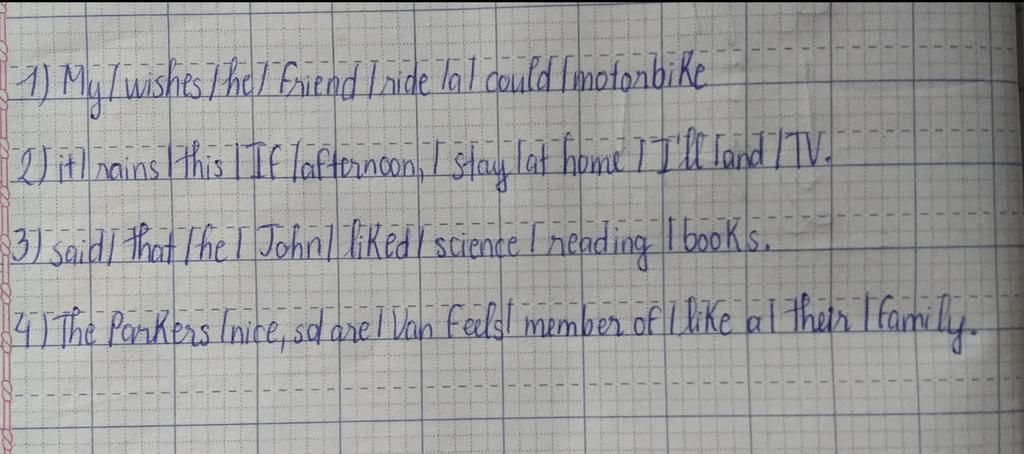 1) My / wishes / he / friend / ride / a / could / motorbike
2) it / rains / this / If / afternoon, / stay / at home / I'll / and / TV.
3) said / that / he / John / liked / science / reading / books.
4) The Parkers / nice, so / are / Van feels / member of / like a / their / family.